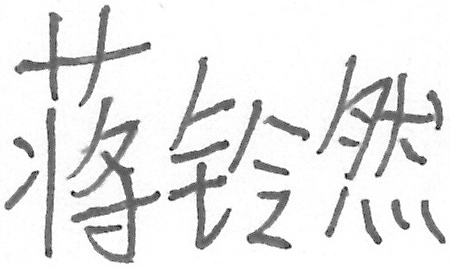 蒋铃然